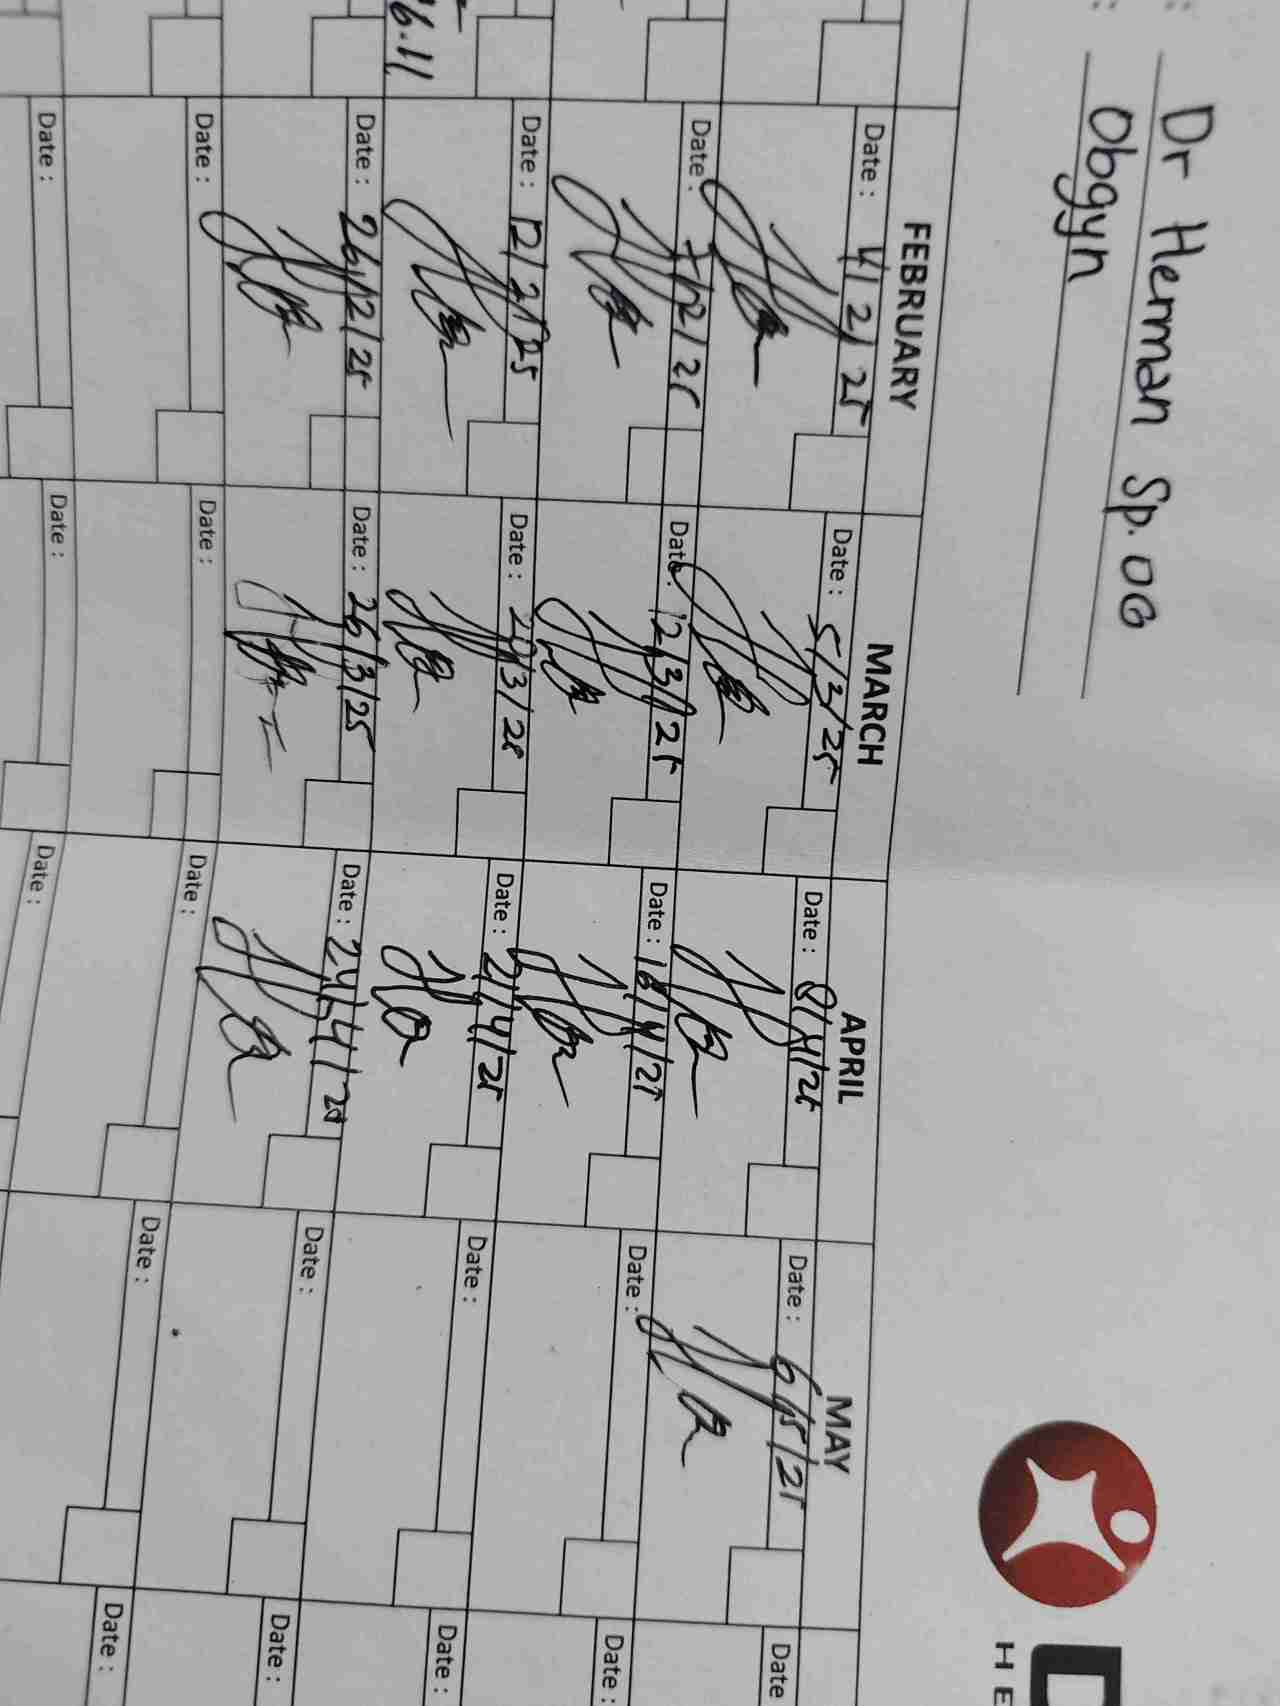 : Dr Herman Sp.OG
: Obgyn
D
HE
FEBRUARY MARCH APRIL MAY
Date : 4/2/25 Date : 5/3/25 Date : 8/4/25 Date : 6/5/25 Date
Date : 7/2/25 Date : 12/3/25 Date : 18/4/25 Date : Date :
Date : 12/2/25 Date : Date : 21/4/25 Date : Date :
16.11
Date : 26/2/25 Date : 26/3/25 Date : 24/4/25 Date : Date :
Date : Date : Date : Date : Date :
Date : Date : Date :